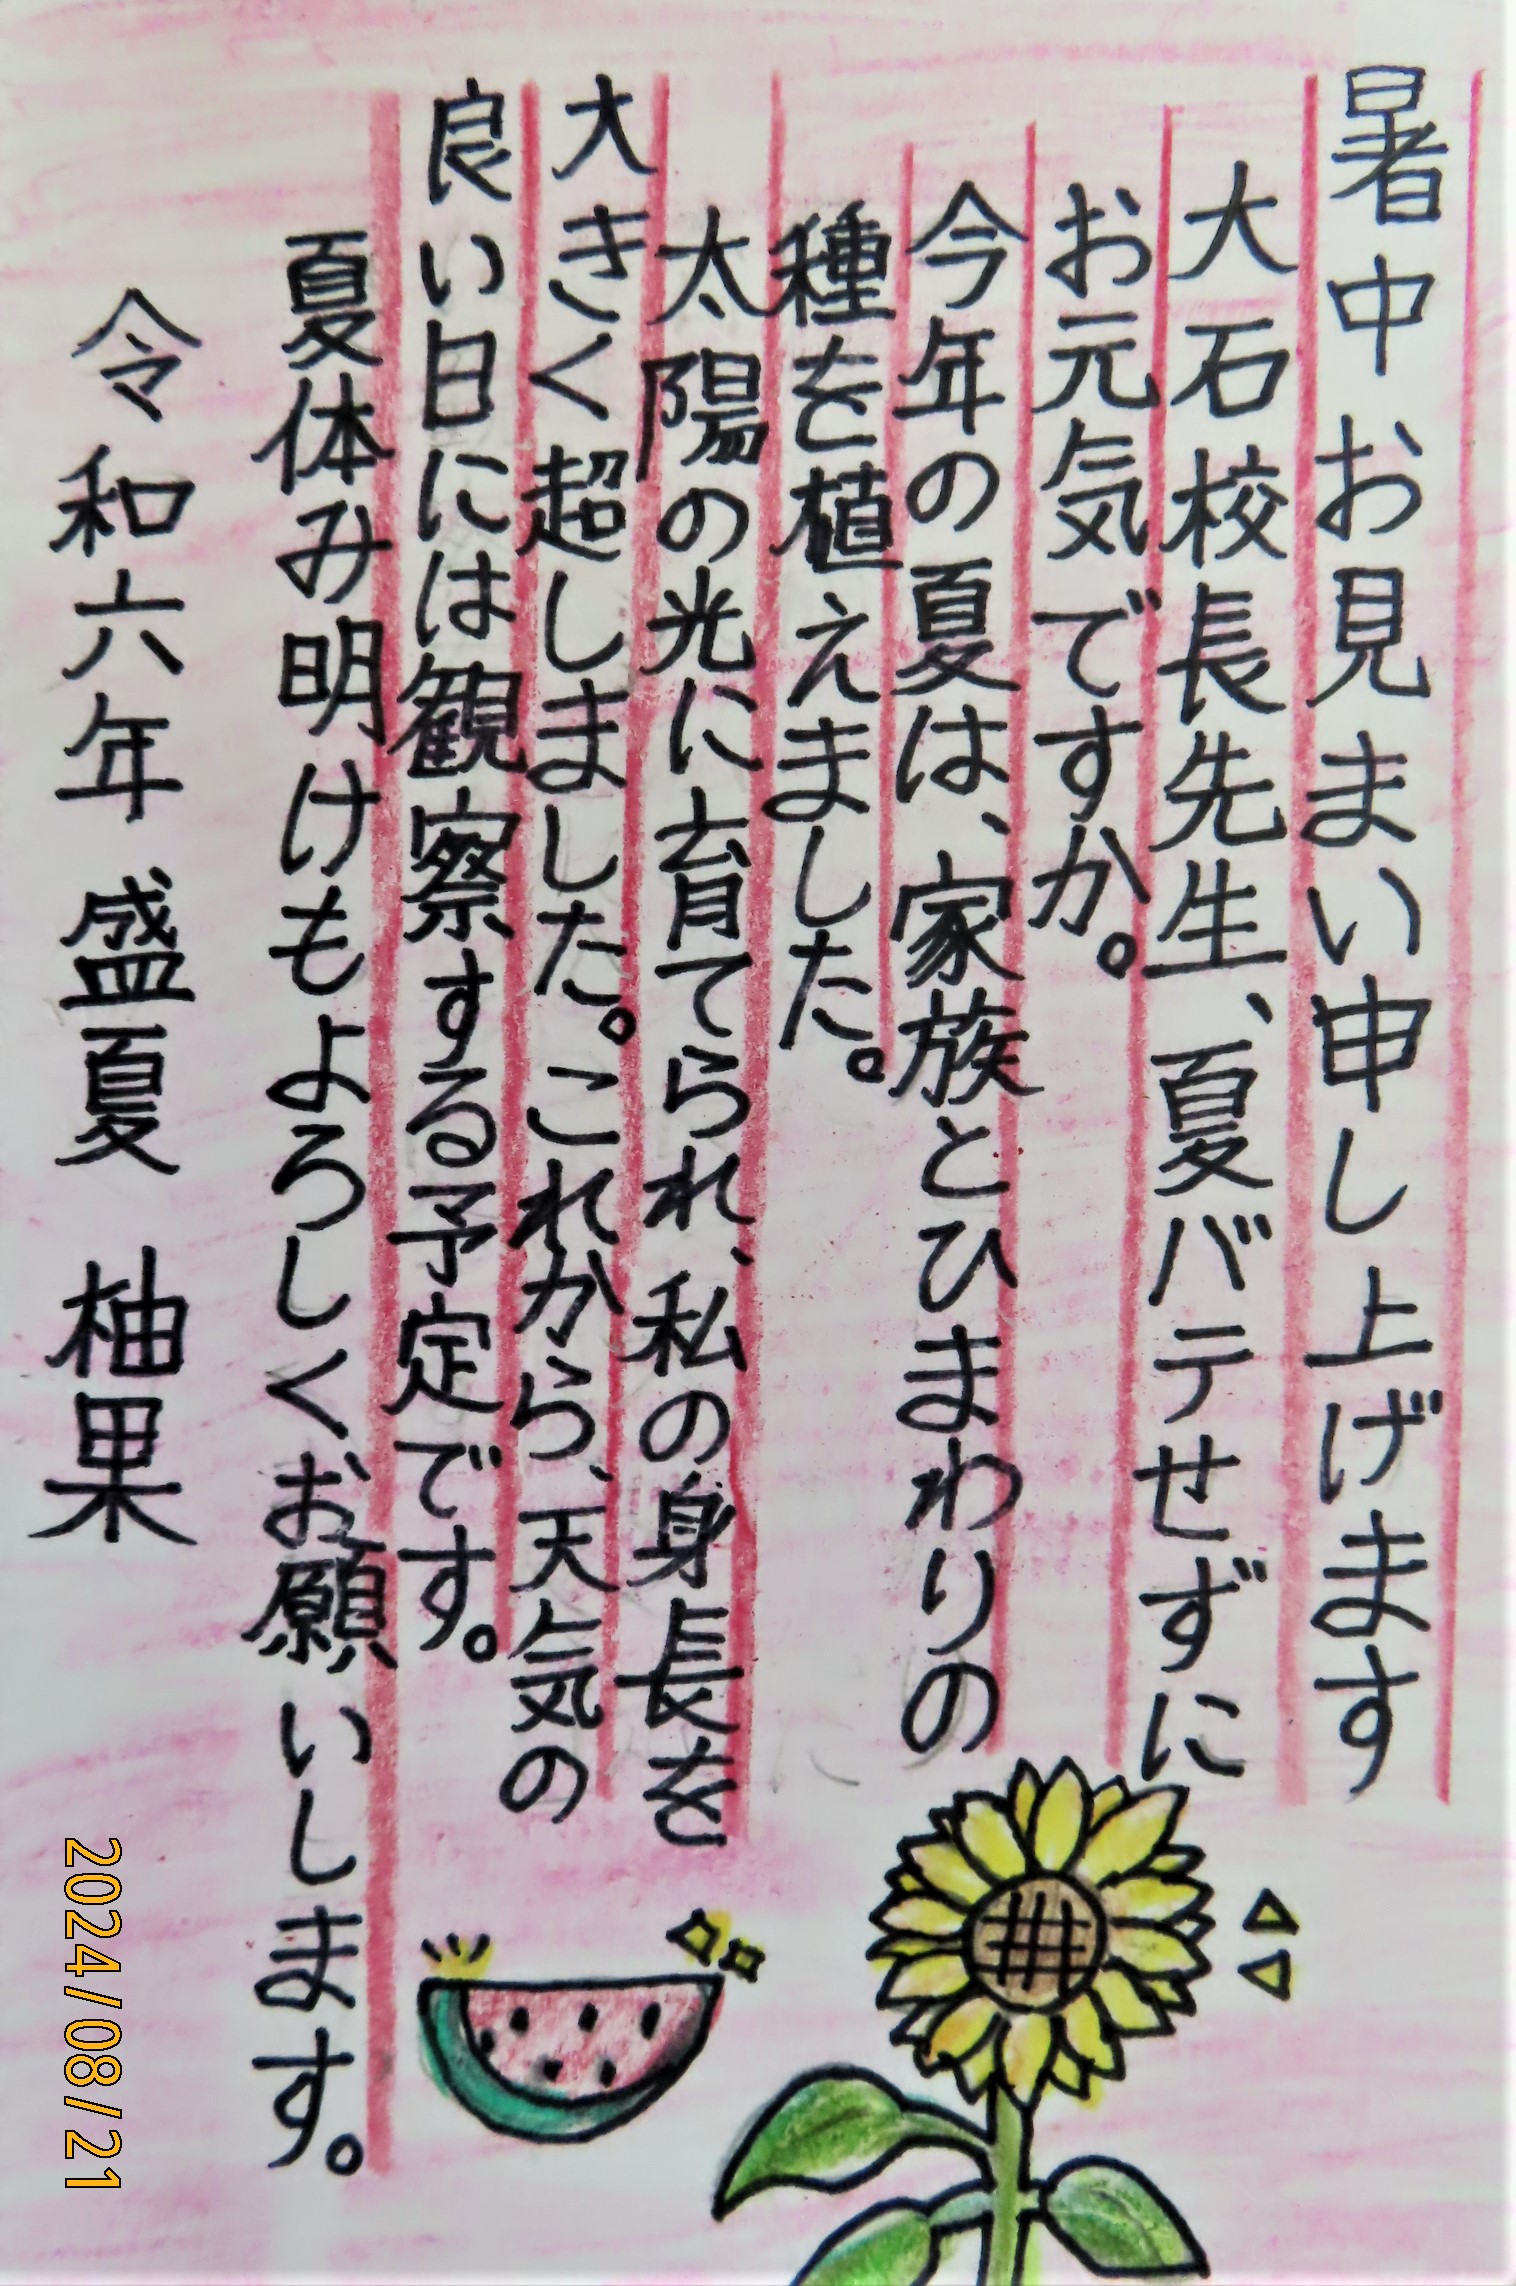 暑中お見まい申し上げます
大石校長先生、夏バテせずに
お元気ですか。
今年の夏は、家族とひまわりの
種を植えました。
太陽の光に育てられ、私の身長を
大きく超しました。これから、天気の
良い日には観察する予定です。
夏休み明けもよろしくお願いします。
令和六年 盛夏 柚果
2024/08/21